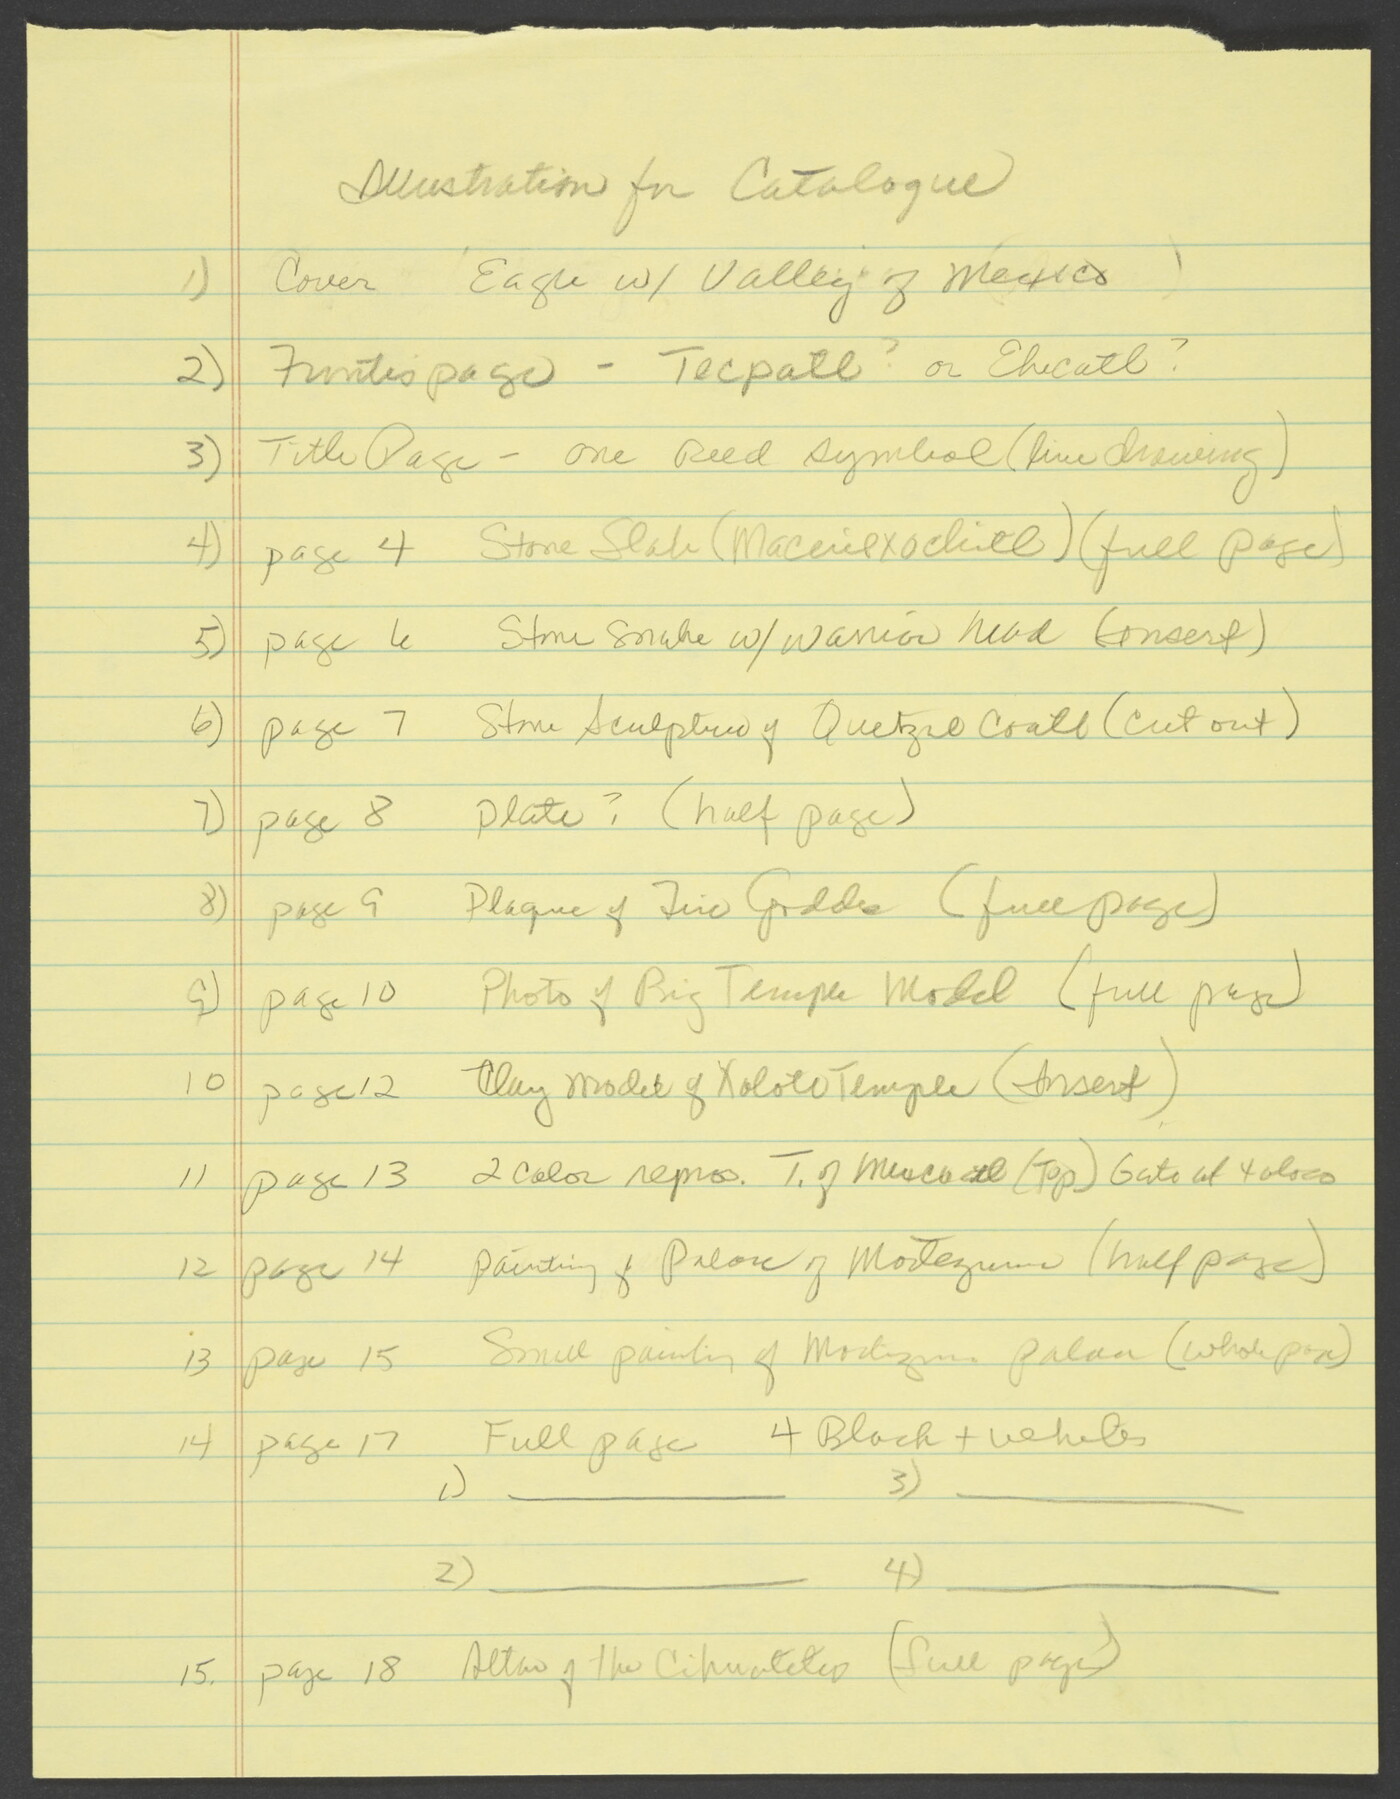 Illustration for Catalogue
1) Cover (Eagle w/ Valley of Mexico)
2) Frontispage - Tecpatl? or Ehecatl?
3) Title Page - one Reed symbol (line drawing)
4) page 4 Stone Slab (Macuilxochitl) (full page)
5) page 6 Stone Snake w/ warrior head (insert)
6) page 7 Stone Sculpture of Quetzalcoatl (cut out)
7) page 8 plate? (half page)
8) page 9 Plaque of Fire Goddes (full page)
9) page 10 Photo of Big Temple Model (full page)
10 page 12 Clay model of Xolotl Temple (Insert)
11 page 13 2 color repros. T. of (Top) Gate at Xoloco
12 page 14 painting of Palace of Moctezuma (half page)
13 page 15 Small painting of Moctezuma palace (whole page)
14 page 17 Full page 4 Black + whites
1) 3)
2) 4)
15. page 18 Altar of the Cihuateteo (full page)